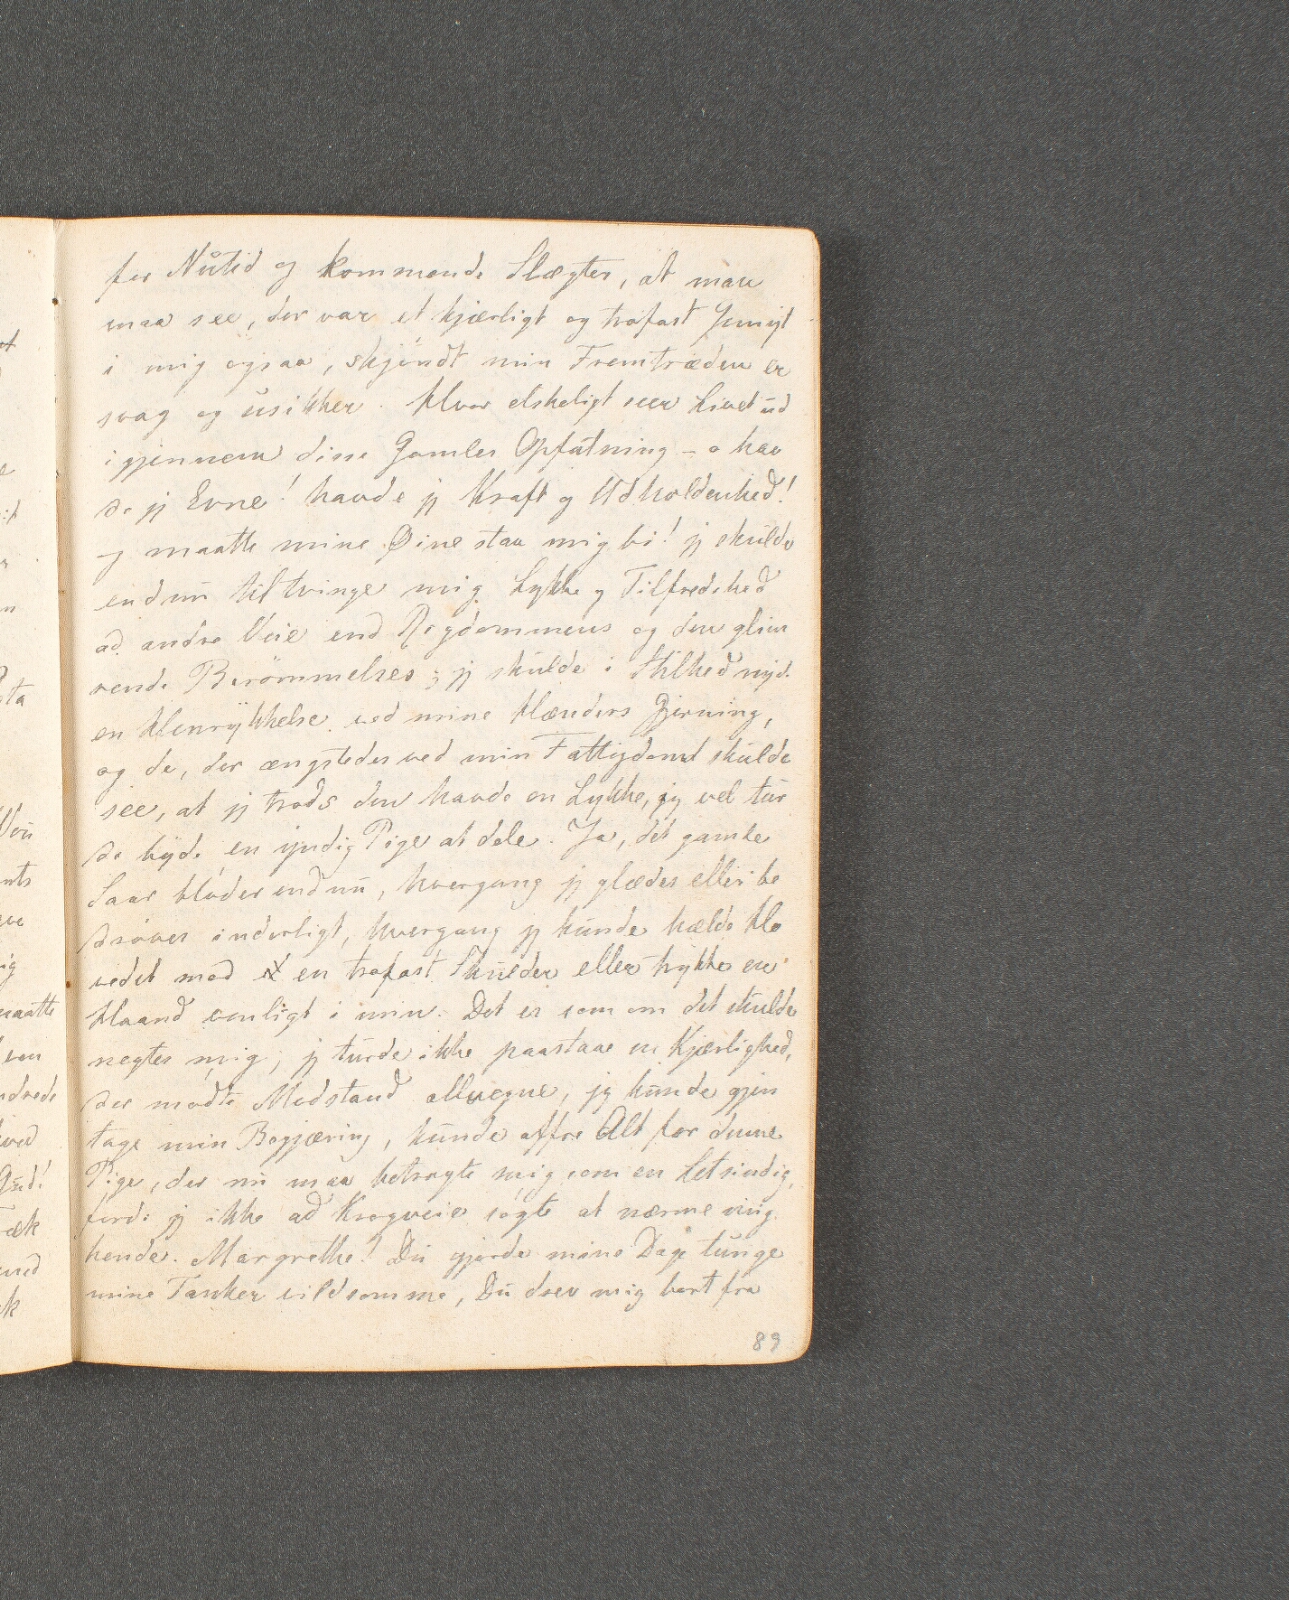 for Nutid og kommende Slægter, at man
maa see, der var et kjærligt og trofast Gemyt
i mig ogsaa, skjöndt min Fremtræden er
svag og usikker. Hvor elskeligt seer Livet ud
igjennem disse Gamles Opfatning – o hav
de jeg Evne! havde jeg Kraft og Udholdenhed!
og maatte mine Øine staa mig bi! jeg skulde
endnu tiltvinge mig Lykke og Tilfredshed
ad andre Veie end Rigdommens og den glim
rende Berömmelses; jeg skulde i Stilhed nyde
en Henrykkelse ved mine Hænders Gjerning,
og de, der ængstedes ved min Fattigdom skulde
see, at jeg trods den havde en Lykke, jeg vel tur
de byde en yndig Pige at dele. Ja, det gamle
Saar blöder endnu, hvergang jeg glædes eller be
dröves inderligt, hvergang jeg kunde hælde Ho
vedet mod en trofast Skulder eller trykke en
Haand venligt i min. Det er som om det skulde
negtes mig; jeg turde ikke paastaae en Kjærlighed,
der mödte Modstand allevegne, jeg kunde gjen
tage min Begjæring, kunde offre Alt for denne
Pige, der nu maa betragte mig som en Letsindig,
fordi jeg ikke ad Krogveie sögte at nærme mig
hende. Margrethe! Du gjorde mine Dage tunge
mine Tanker vildsomme, Du drev mig bort fra
89